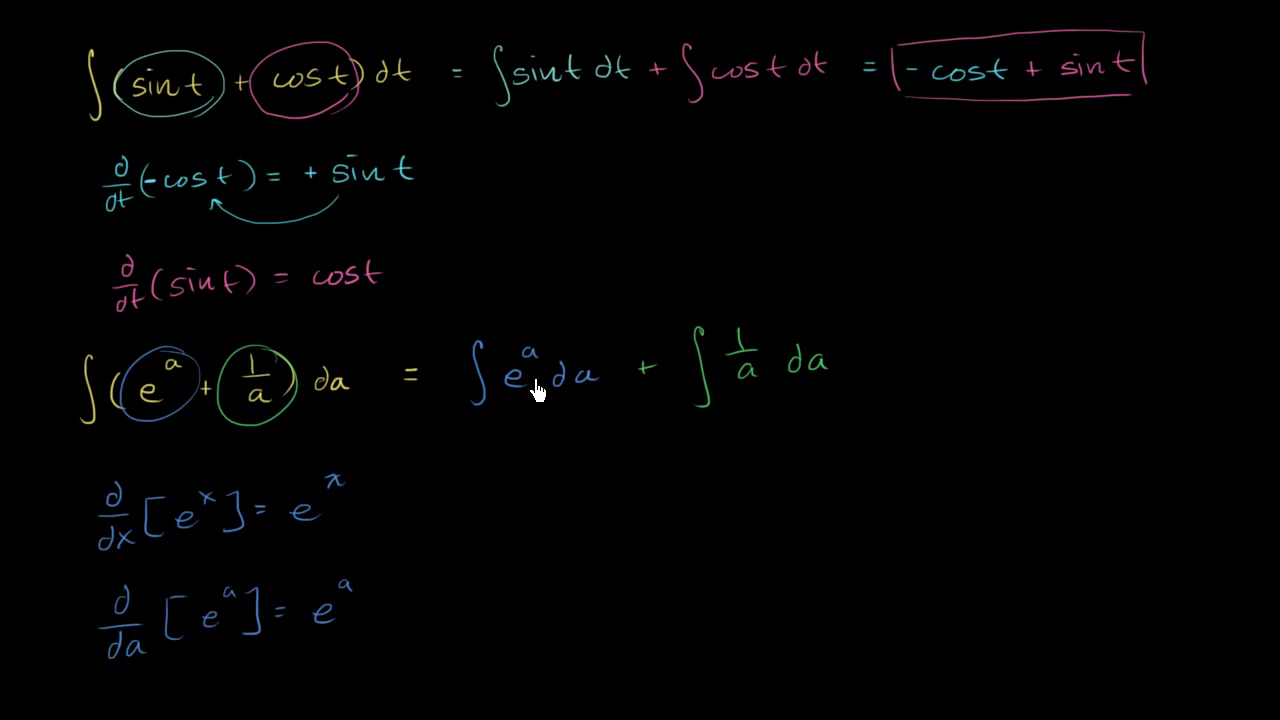 ∫(sin t + cos t) dt = ∫sin t dt + ∫cos t dt = -cos t + sin t
d/dt(-cos t) = + sin t
d/dt(sin t) = cos t
∫(e^a + 1/a) da = ∫e^a da + ∫1/a da
d/dx[e^x] = e^x
d/da[e^a] = e^a